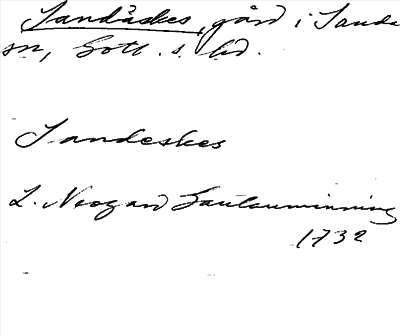 Sandäskes, gård i Sanda
sn, Gotl. s. hd.
Sandeskes
L. Neogard Gautauminning
1732